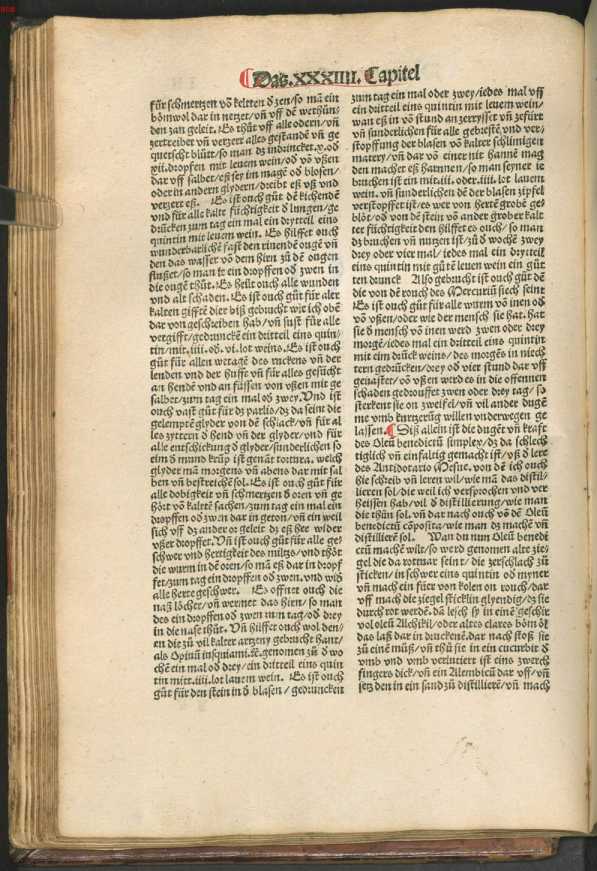 Das .XXXIIII. Capitel
für schmertzen vō kelten d̄ zen/so mā ein
bōmwol dar in netzet/vn̄ vff dē wethūn-
den zan geleit. Es thůt vff alle odern/vn̄
zertreiber vn̄ verzert alles gestandē vn̄ ge
quetscht blůt/so man dz indrincket.x.od̄
xii.dropffen mit leuem wein/od̄ vō vßen
dar vff salbet/es sey im magē od̄ blosen/
oder in andern glydern/dreibt eß vß vnd
verzert eß. Es ist ouch gůt dē kichendē
vnd für alle kalte füchtigkeit d̄ lungen/ge
drücken zum tag ein mal ein drytteil eins
quintin mit leuem wein. Es hilffet ouch
wunderbarlichē fast den rinendē ougē vn̄
den das wasser vō dem hirn zů dē ougen
flusset/so man ie ein dropffen od̄ zwen in
die ougē thůt. Es heilt ouch alle wunden
vnd alt schaden. Es ist ouch gůt für aler
kalten gifftē dier biß gebrucht wie ich obē
dar von geschriben hab/vn̄ sust für alle
vergifft/gedrunckē ein dritteil eins quin-
tin/mit.iiii.od̄.vi.lot weins. Es ist ouch
gůt für allen wetagē des ruckens vn̄ der
lenden vnd der hufft vn̄ für alles gesücht
an hendē vnd an füssen von vßen mit ge
salbet/zum tag ein mal od̄ zwey. Vnd ist
ouch vast gůt für dz parlis/dz da seint die
gelemptē glyder von dē schlack/vn̄ für al
les zyttern d̄ hend vn̄ der glyder/vnd für
alle entschickung d̄ glyder/sunderlichen so
eim d̄ mund krūp ist genāt tortura. welch
glyder mā morgens vn̄ abens dar mit sal
ben vn̄ bestreichē sol. Es ist ouch gůt für
alle dobigkeit vn̄ schmertzen d̄ oren vn̄ ge
hört vō kaltē sachen/zum tag ein mal ein
dropffen od̄ zwen dar in geton/vn̄ ein weil
sich vff dz ander or geleit dz eß her wider
vßer dropffet. Vn̄ ist ouch gůt für alle ge/
schwer vnd hertigkeit des miltzs/vnd thōt
die wurm in dē oren/so mā eß dar in dropf
fet/zum tag ein dropffen od̄ zwen. vnd wid̄
alle herte geschwer. Es offnet ouch die
naß löcher/vn̄ wermet das hirn/so man
des ein dropffen od̄ zwen zum tag/od̄ drey
in die nase thůt. Vn̄ hilffet ouch wol den/
en die zů vil kalter artzeny gebrucht hant/
als Opiuū iusquiami.ꝛc.genomen zů d̄ wo
chē ein mal od̄ drey/ein dritteil eins quin
tin mitt.iiii.lot lauem wein. Es ist ouch
gůt für den stein in d̄ blasen/gedruncken
zum tag ein mal oder zwey/iedes mal vff
ein dritteil eins quintin mit leuem wein/
wan eß in vō stund an zerrysset vn̄ zefürt
vn̄ sunderlichen für alle gebrestē vnd ver-
stopffung der blasen vō kalter schlimigen
matery/vn̄ dar vō einer nit hannē mag
den macher eß harnnen/so man seyner ie
bruchen ist ein mit.iii.oder.iiii.lot lauem
wein. vn̄ sunderlichen dē der blasen zipfel
verstopffet ist/es wer von hertē grobē ge-
blöt/od̄ von dē stein vō ander grober kalt
ter füchtigkeit den hilffet es ouch/so man
dz bruchen vn̄ nutzen ist/zů d̄ wochē zwey
drey oder vier mal/iedes mal ein dryteil
eins quintin mit gůtē leuem wein ein gůt
ten drunck Also gebrucht ist ouch gůt dē
die von dē rouch des Mercurii siech seint
Es ist ouch gůt für alle wurm vō inen od̄
vō vßen/oder wie der mensch sie hat. Hat
sie d̄ mensch vō inen werd zwen oder drey
morgē/iedes mal ein dritteil eins quintin
mit eim drück weins/des morgēs in niech
tern gedrücken/drey od̄ vier stund dar vff
geuastet/vō vßen werd es in die offennen
schaden gedrouffet zwen oder drey tag/so
sterbent sie on zweifel/vn̄ vil ander dugē
me vmb kurtzerūg willen vnderwegen ge
lassen. Diß allein ist die dugēt vn̄ kraft
des Oleū benedictū simplex/dz da schlech
tiglich vn̄ einfaltig gemacht ist/vß d̄ lere
des Antidotario Mesue. von dē ich ouch
hie schreib vn̄ leren wil/wie mā das distil-
lieren sol/die weil ich versprochen vnd ver
heissen hab/vil d̄ distillierung/wie man
die thůn sol. vn̄ dar nach ouch vō dē Oleū
benedictū cōposita/wie man dz machē vn̄
distillierē sol. Wan du nun Oleū benedi
ctū machē wilt/so werd genomen alte zie-
gel die da rotuar seint/die zerschlach zů
sticken/in schwer eins quintin od̄ myner
vn̄ mach ein fůer von kolen on rouch/dar
vff mach die ziegel sticklin glyendig/dz sie
durch rot werdē. da lesch sy in einē geschir
vol oleū Alchikil/oder altes clares bōm öl
das laß dar in druckenē.dar nach stoß sie
zů einē můß/vn̄ thů sie in ein cucurbit d̄
vmb vnd vmb verlutiert ist eins zwerch
fingers dick/vn̄ ein Alembicū dar vff/vn̄
setz den in ein sand zů distillierē/vn̄ mach